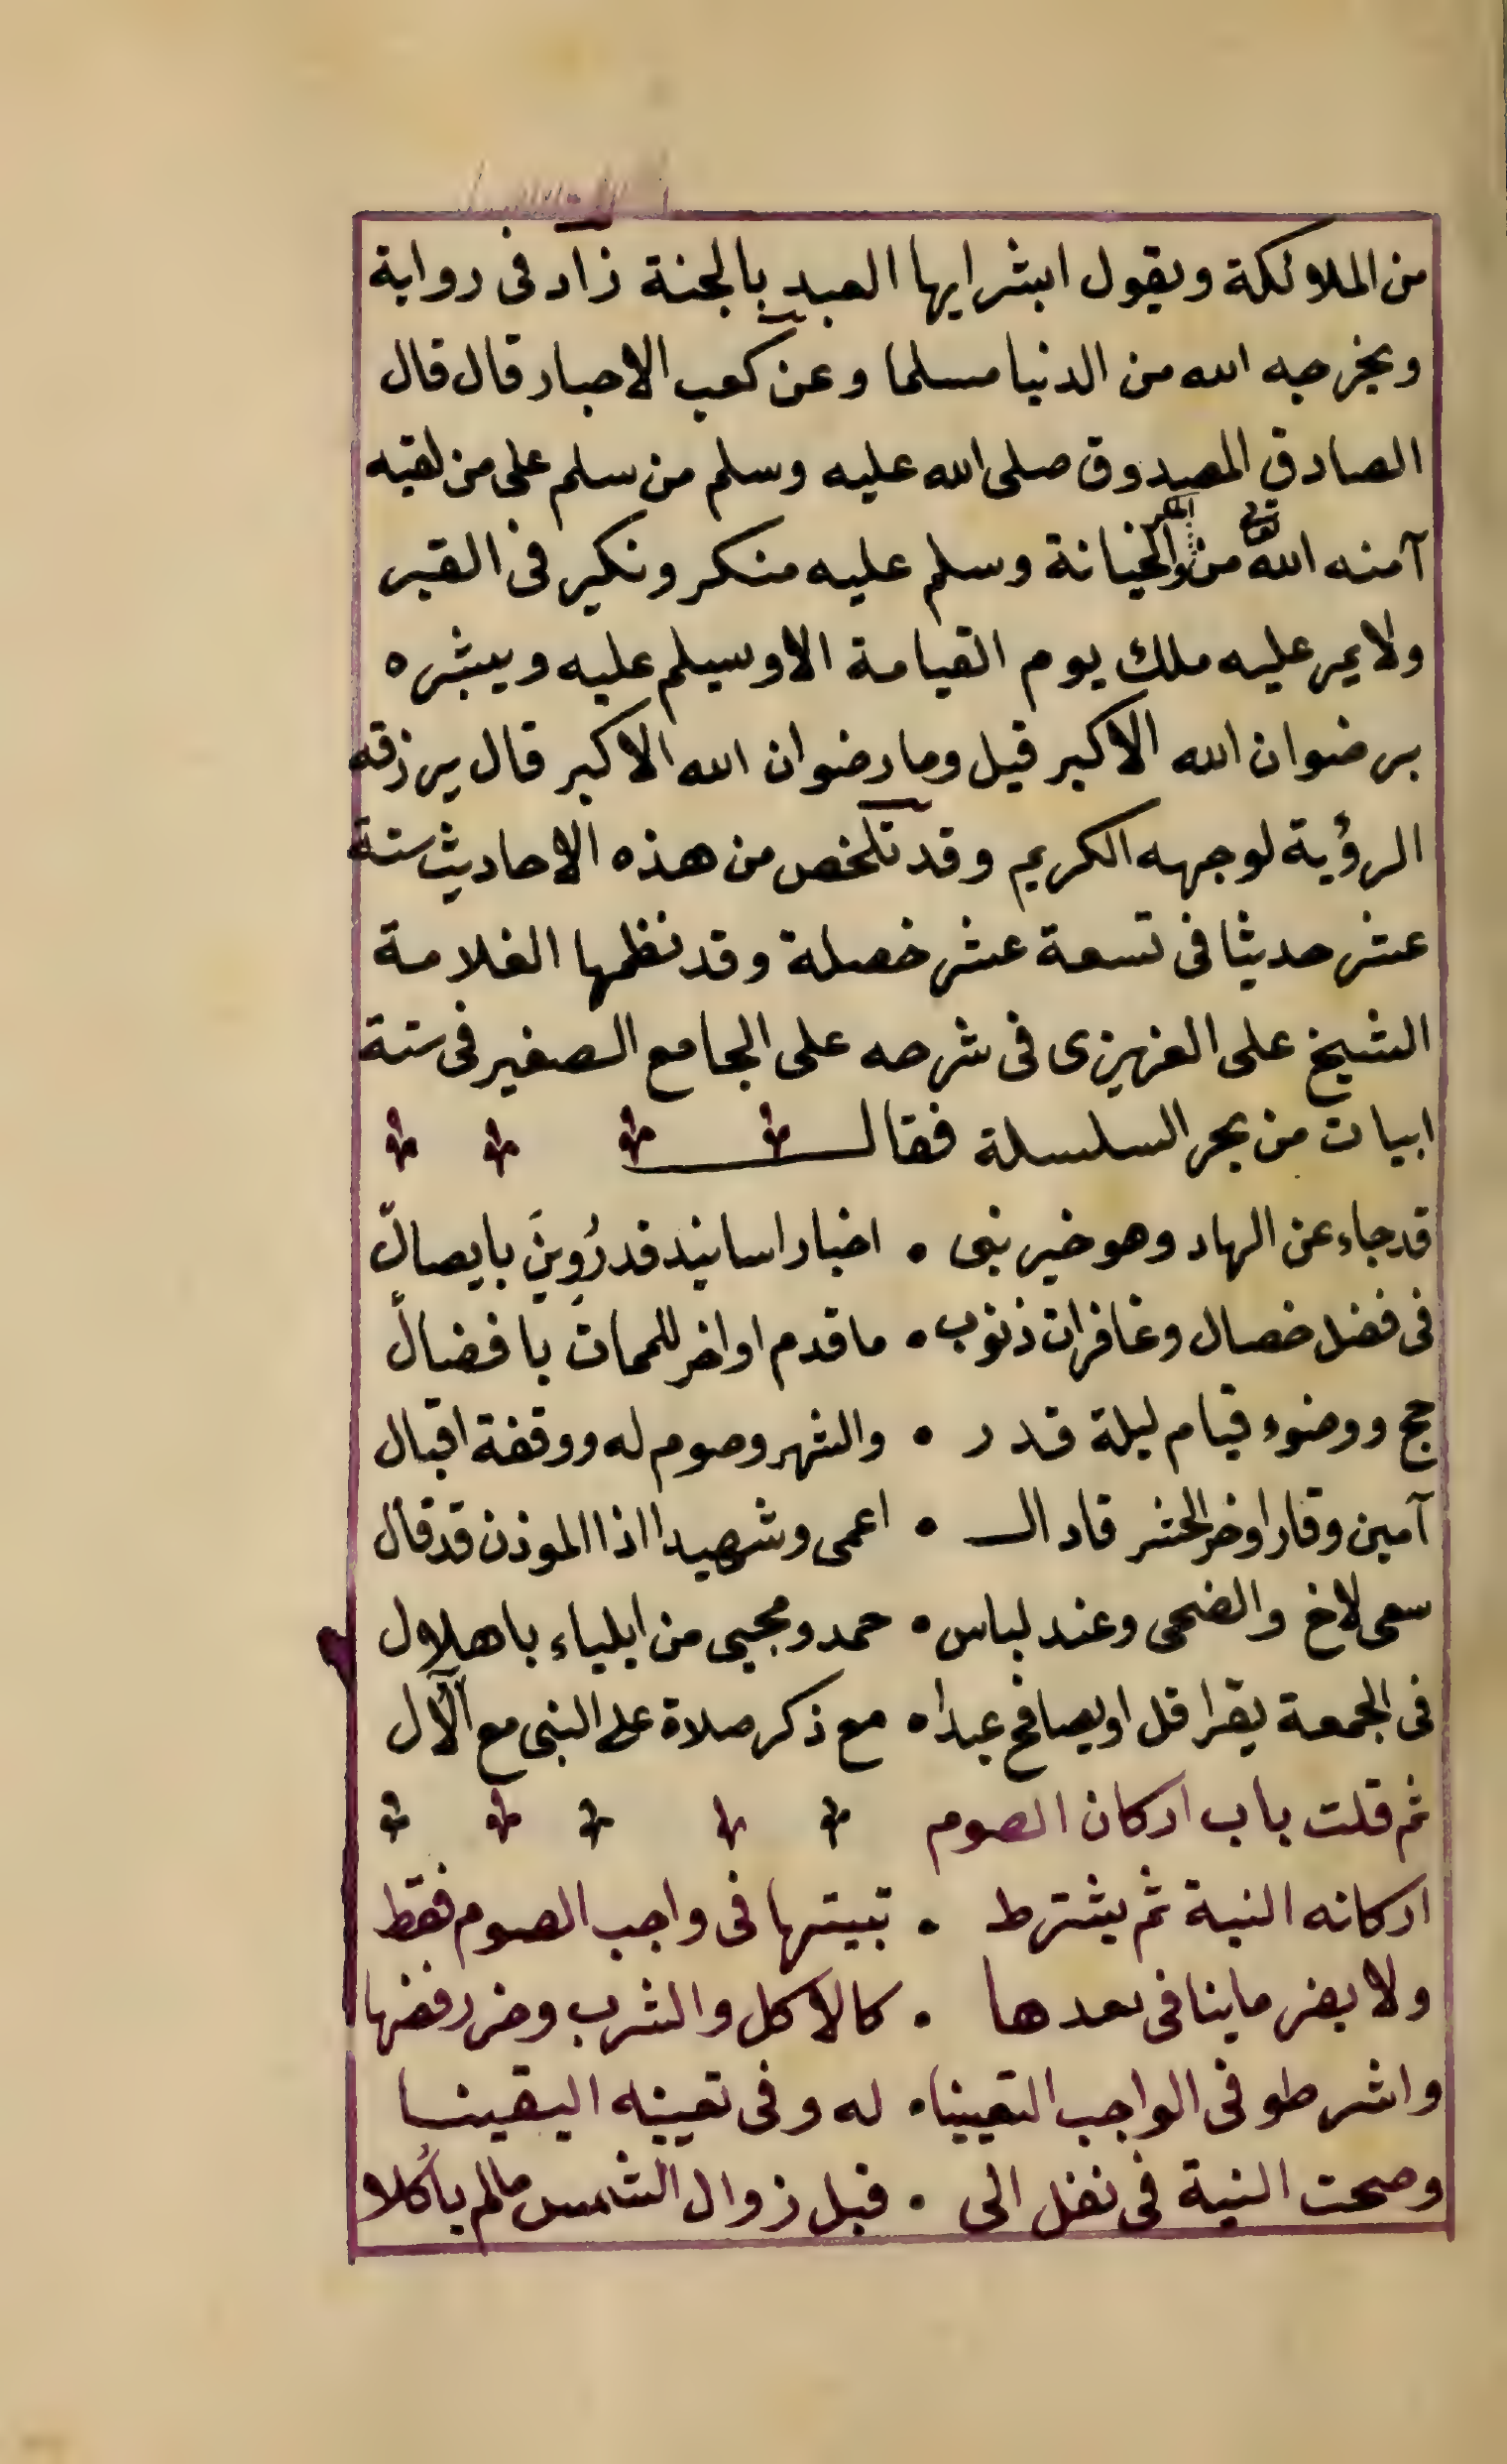 من الملائكة ويقول ابشر ايها العبد بالجنة زاد فى رواية
ويخرجه الله من الدنيا مسلما وعن كعب الاحبار قال قال
الصادق المصدوق صلى الله عليه وسلم من سلم على من لقيه
آمنه الله من والخيانة وسلم عليه منكر ونكير فى القبر
ولا يمر عليه ملك يوم القيامة الا وسيلم عليه ويبشره
برضوان الله الاكبر قيل وما رضوان الله الاكبر قال يرزقه
الرؤية لوجهه الكريم وقد تلخص من هذه الاحاديث ستة
عشر حديثا فى تسعة عشر خصلة وقد نظمها العلامة
الشيخ على العزيزى فى شرحه على الجامع الصغير فى ستة
ابيات من بحر السلسلة فقال
قد جاء عن الهاد وهو خير نبى • اخبار اسانيد قد رُوِينَ بايصالّ
فى فضل خصال وغافرات ذنوب • ما قدم او اخر للممات بافضالّ
حج ووضوء قيام ليلة قدر • والشهر وصوم له ووقفة اقبال
آمين وقار اوخر الحشر قاد الـ • اعمى وشهيدا اذا الموذن قد قال
سعى لاخ والضحى وعند لباس • حمد ومجيى من ايلياء باهلال
فى الجمعة يقرا قل او يصافح عبدا • مع ذكر صلاة على النبى مع الآل
ثم قلت باب اركان الصوم
اركانه النية ثم يشترط • تبيتها فى واجب الصوم فقط
ولا يضر ما ينافى بعدها • كالاكل والشرب وضر رفضها
واشرطو فى الواجب التعيينا • له وفى تعينه اليقينا
وصحت النية فى نفل الى • قبل زوال الشمس ما لم ياكلا